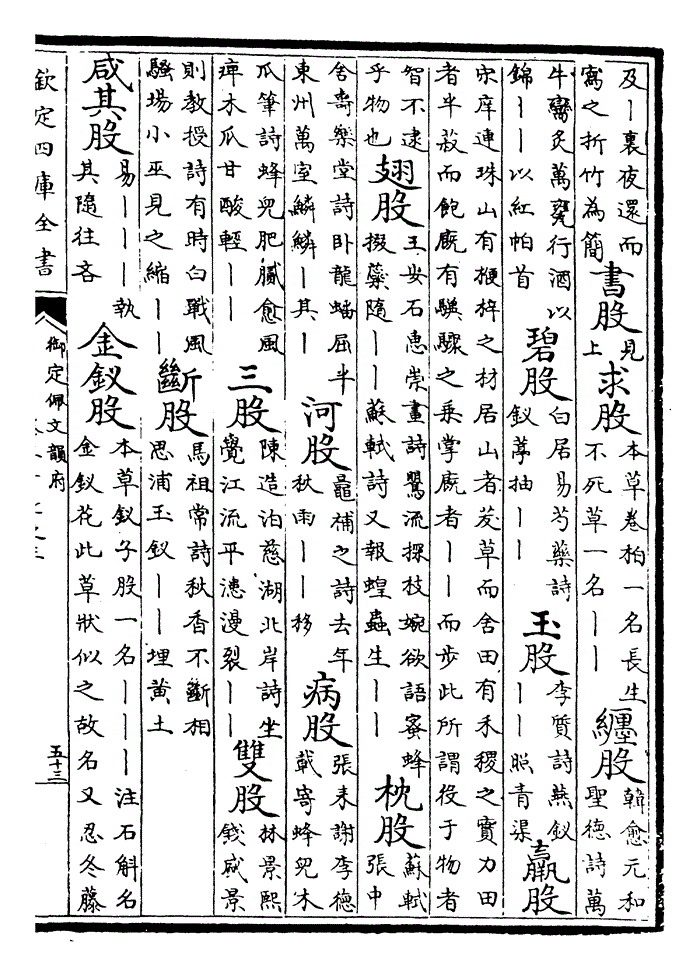 及丨裏夜還而
寫之折竹為簡
書股
見
上
求股
本草卷柏一名長生
不死草一名丨丨
纏股
韓愈元和
聖德詩萬
牛臠炙萬甕行酒以
錦丨丨以紅帕首
碧股
白居易芍藥詩
釵葶抽丨丨
玉股
李質詩燕釵
丨丨照青渠
羸股
宋庠連珠山有楩梓之材居山者茇草而舍田有禾稷之寶力田
者半菽而飽廄有驥騄之乘掌廄者丨丨而步此所謂役于物者
智不逮
乎物也
翅股
王安石惠崇畫詩鸎流探枝婉欲語蜜蜂
掇蘂隨丨丨蘇軾詩又報蝗蟲生丨丨
枕股
蘇軾
張中
舍壽樂堂詩卧龍蟠屈半
東州萬室鱗鱗丨其丨
河股
晁補之詩去年
秋雨丨丨移
病股
張耒謝李德
載寄蜂兒木
瓜筆詩蜂兒肥膩愈風
痺木瓜甘酸輕丨丨
三股
陳造泊慈湖北岸詩坐
覺江流平漶漫裂丨丨
雙股
林景熙
餞咸景
則教授詩有時白戰風
騷場小巫見之縮丨丨
斷股
馬祖常詩秋香不斷相
思浦玉釵丨丨埋黃土
咸其股
易丨丨丨執
其隨往吝
金釵股
本草釵子股一名丨丨丨注石斛名
金釵花此草狀似之故名又忍冬藤
欽定四庫全書
御定佩文韻府
五十三